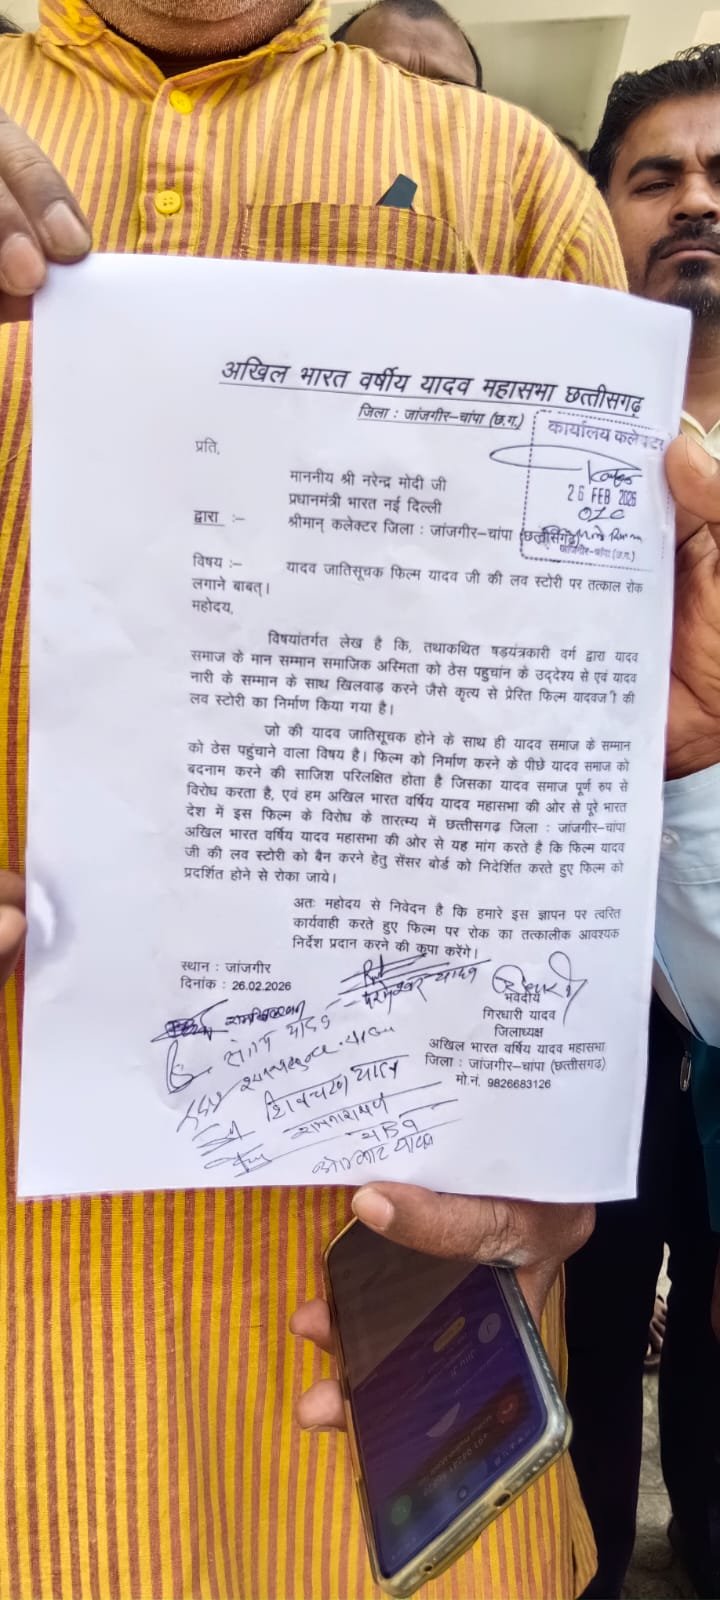 अखिल भारत वर्षीय यादव महासभा छत्तीसगढ़
जिला : जांजगीर–चांपा (छ.ग.)
कार्यालय कलेक्टर
26 FEB 2026
जांजगीर-चांपा (छ.ग.)
प्रति,
माननीय श्री नरेन्द्र मोदी जी
प्रधानमंत्री भारत नई दिल्ली
द्वारा :– श्रीमान् कलेक्टर जिला : जांजगीर–चांपा (छत्तीसगढ़)
विषय :– यादव जातिसूचक फिल्म यादव जी की लव स्टोरी पर तत्काल रोक
लगाने बाबत्।
महोदय,
विषयांतर्गत लेख है कि, तथाकथित षड़यंत्रकारी वर्ग द्वारा यादव
समाज के मान सम्मान समाजिक अस्मिता को ठेस पहुचांन के उद्देश्य से एवं यादव
नारी के सम्मान के साथ खिलवाड़ करने जैसे कृत्य से प्रेरित फिल्म यादवजी की
लव स्टोरी का निर्माण किया गया है।
जो की यादव जातिसूचक होने के साथ ही यादव समाज के सम्मान
को ठेस पहुंचाने वाला विषय है। फिल्म को निर्माण करने के पीछे यादव समाज को
बदनाम करने की साजिश परिलक्षित होता है जिसका यादव समाज पूर्ण रुप से
विरोध करता है, एवं हम अखिल भारत वर्षिय यादव महासभा की ओर से पूरे भारत
देश में इस फिल्म के विरोध के तारत्म्य में छत्तीसगढ़ जिला : जांजगीर–चांपा
अखिल भारत वर्षिय यादव महासभा की ओर से यह मांग करते है कि फिल्म यादव
जी की लव स्टोरी को बैन करने हेतु सेंसर बोर्ड को निदेर्शित करते हुए फिल्म को
प्रदर्शित होने से रोका जाये।
अतः महोदय से निवेदन है कि हमारे इस ज्ञापन पर त्वरित
कार्यवाही करते हुए फिल्म पर रोक का तत्कालीक आवश्यक
निर्देश प्रदान करने की कृपा करेंगे।
स्थान : जांजगीर
दिनांक : 26.02.2026
परमेश्वर यादव
भवदीय
गिरधारी यादव
जिलाध्यक्ष
अखिल भारत वर्षिय यादव महासभा
जिला : जांजगीर–चांपा (छत्तीसगढ़)
मो.नं. 9826683126
यादव
रामनारायण
यादव
यादव